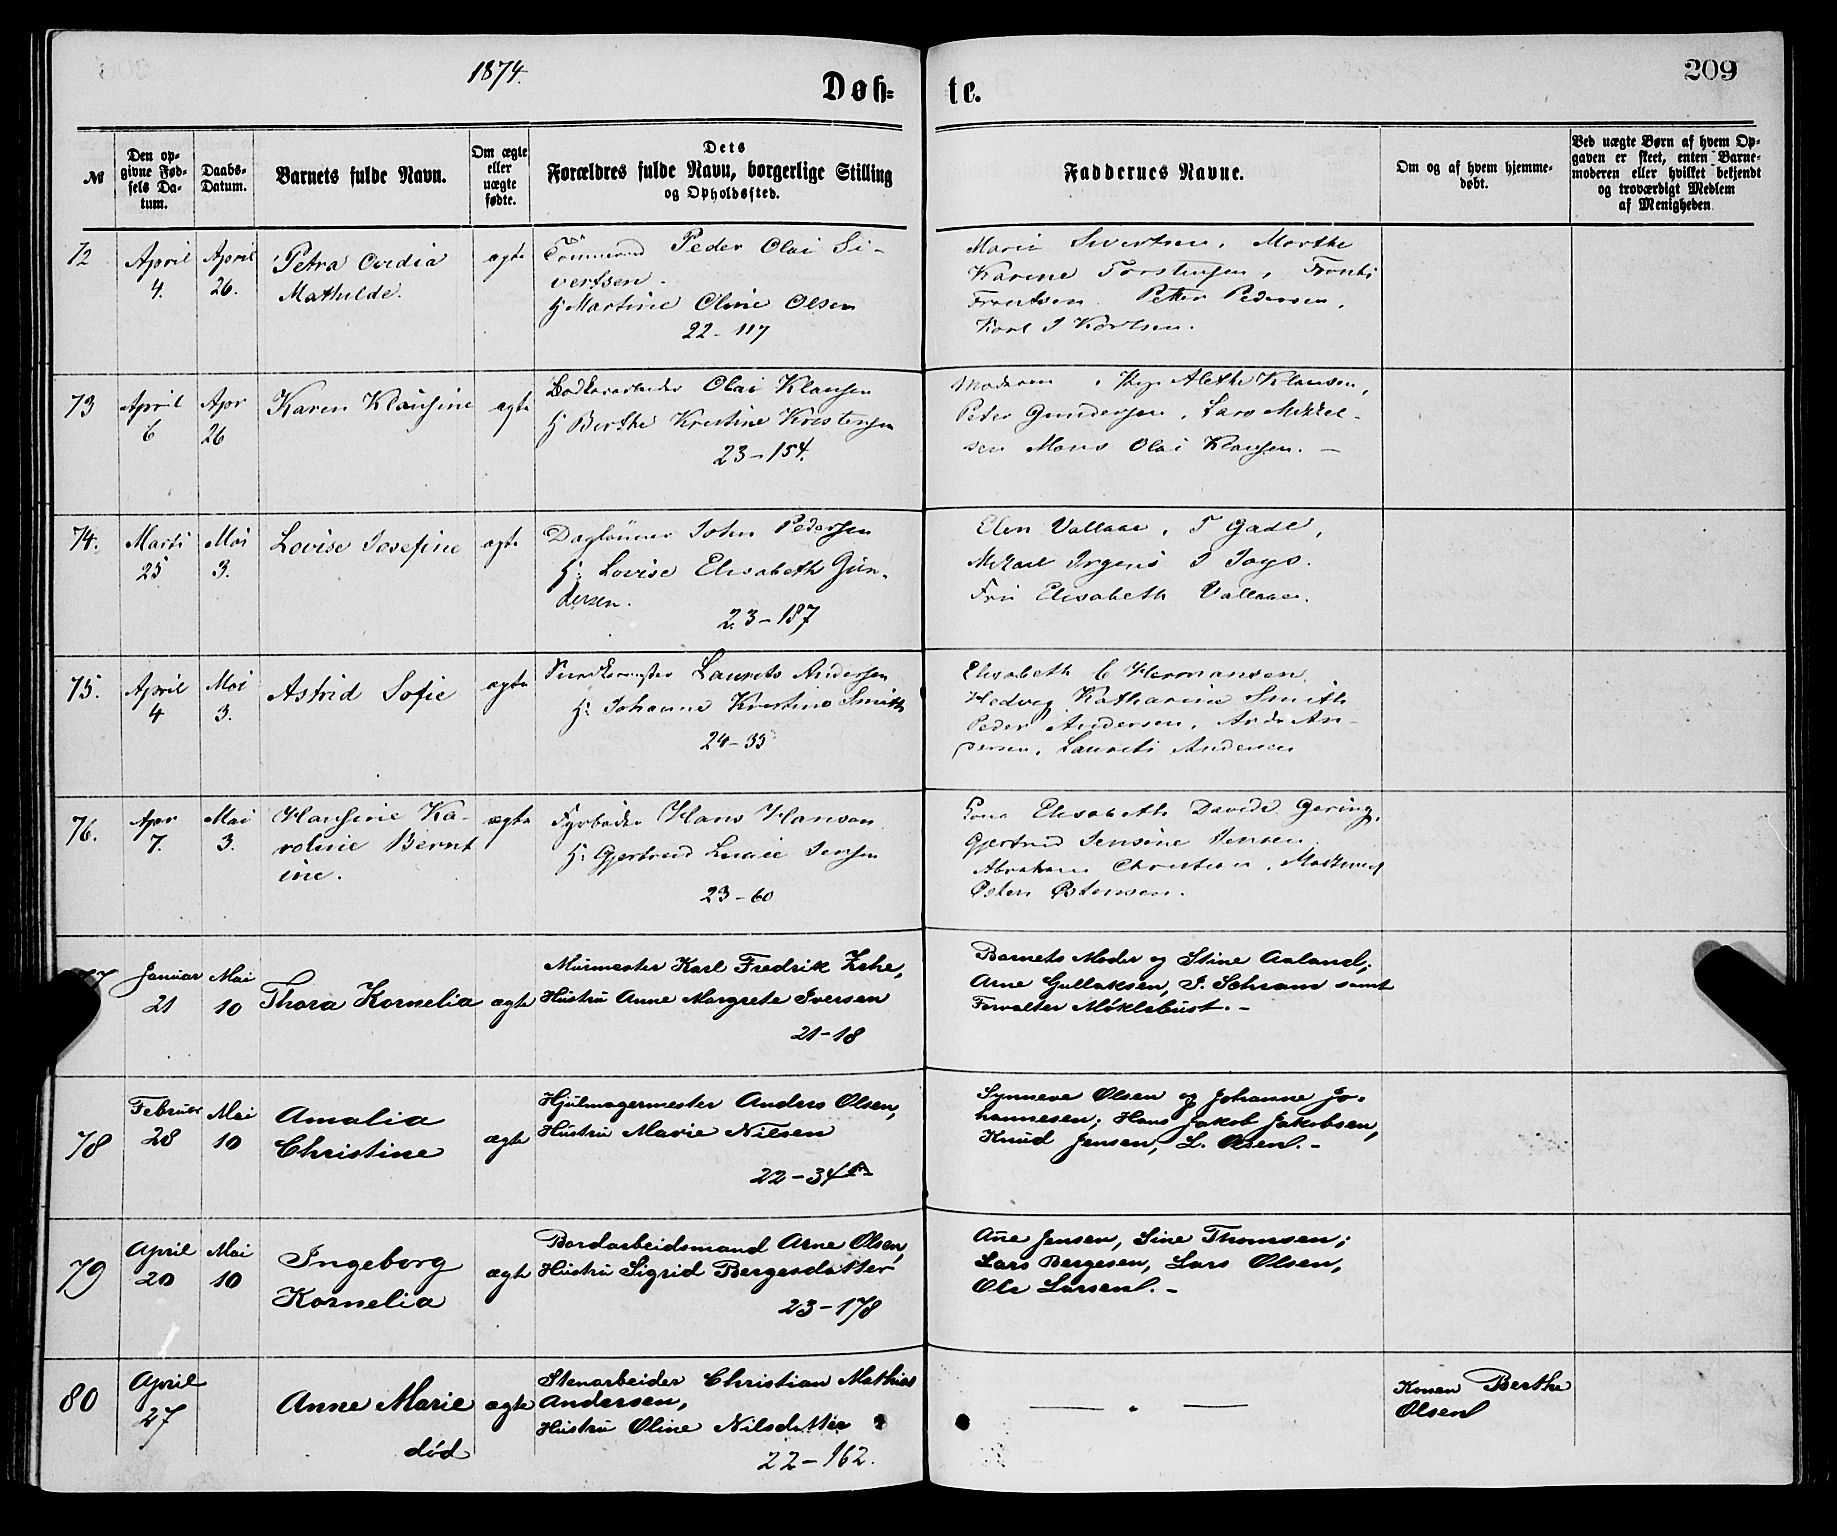 1874.
Døb-
te.
209
№
Den op-
givne Fød-
sels Da-
tum.
Daabs-
Datum.
Barnets fulde Navn.
Om ægte
eller
uægte
fødte.
Dets
Forældres fulde Navn, borgerlige Stilling
og Opholdssted.
Faddernes Navne.
Om og af hvem hjemme-
døbt.
Ved uægte Børn af hvem Op-
gaven er skeet, enten Barne-
moderen eller hvilket bekjendt
og troværdigt Medlem
af Menigheden
72
April
4.
April
26.
Petra Cordia
Mathilde.
ægte
Tømmermd Peder Olai Si-
vertsen.
H Martine Oline Olsen
22-117
Marie Sivertsen, Marthe
Karine Torstensen,
Petter Pedersen,
Karl J Karlsen.
73
April
6
Apr
26
Karen Klausine
ægte
Olai Klausen
H Berthe Kristine Kristensen
23-154.
Moderen, Alethe Klausen,
Peter Gundersen, Lars Mikkel-
sen Mons Olai Klausen. -
74.
Marts
25
Mai
3.
Lovise Josefine
ægte
Daglønner John Pedersen
H: Lovise Elisabeth Gun-
dersen.
23-187
Elen Vallaae, T Gade,
Mikael Irgens J
Fru Elisabeth Vallaae.
75.
April
4
Mai
3.
Astrid Sofie
ægte
Laurits Andersen
H: Johanne Kristine Smith
24-35
Elisabeth C Hermansen
Hedvig Katharine Smith
Peder Andersen, An-
dersen, Laurits Andersen
76.
Apr
7.
Mai
3.
Hansine Ka-
roline Bernt
ine.
ægte
Fyrbøder Hans Hansen
H: Gjertrud Jensen
23-60
Elisabeth Davide Gering,
Gjertrud Jensine Jensen
Abraham Christian
Østen Østensen.
77
Januar
21
Mai
10
Thora Kornelia
ægte
Murmester Karl Fredrik Zehe,
Hustru Anne Margrete Iversen
21-18
Barnets Moder og Stine Aaland;
Arne Gullaksen, J. Schram samt
Forvalter Møklebust. -
78
Februar
28
Mai
10
Amalia
Christine
ægte
Hjulmagermester Anders Olsen,
Hustru Marie Nilsen
22-34a
Synneve Olsen og Johanne Jo-
hannesen; Hans Jakob Jakobsen,
Knud Jensen, L. Olsen. -
79
April
20
Mai
10
Ingeborg
Kornelia
ægte
Bordarbeidsmand Arne Olsen,
Hustru Sigrid Bergesdatter
23-178
Ane Jensen, Sine Thomsen;
Lars Bergesen, Lars Olsen,
Ole Larsen. -
80
April
27
Anne Marie
død
ægte
Stenarbeider Christian Mathias
Andersen,
Hustru Oline Nilsdatter
22-162.
— " —
Konen Berthe
Olsen